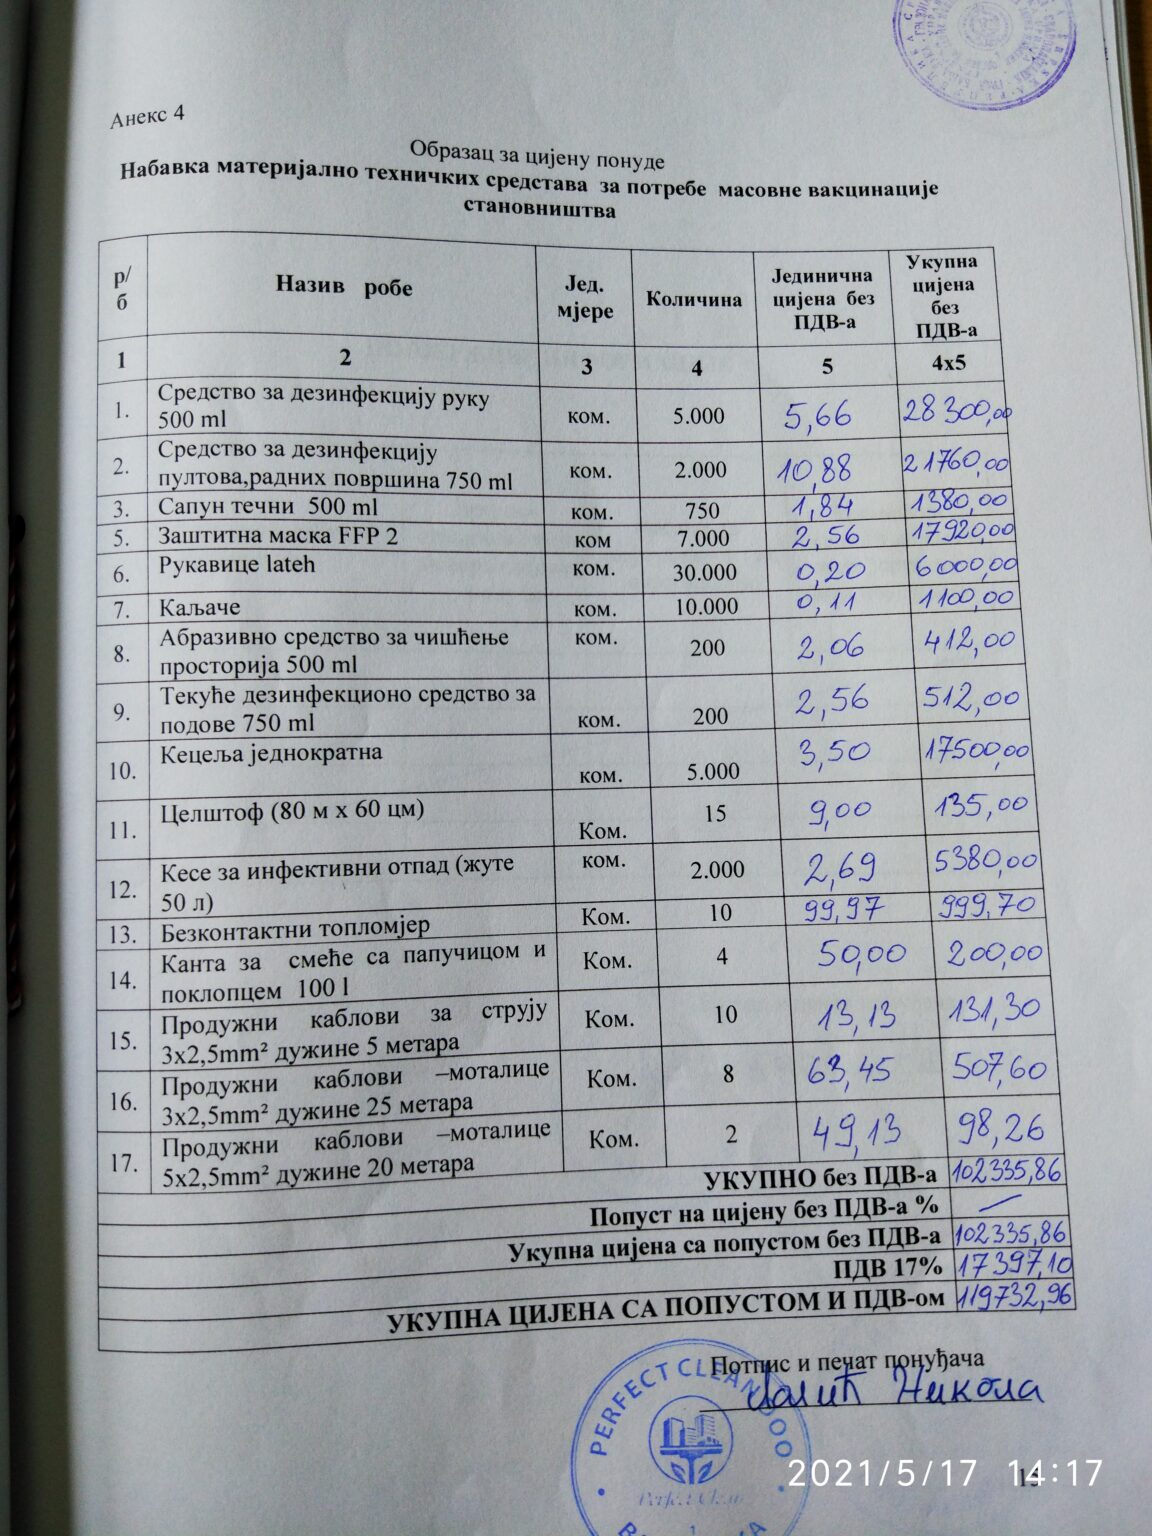 Анекс 4
Образац за цијену понуде
Набавка материјално техничких средстава за потребе масовне вакцинације
становништва
р/б Назив робе Јед. мјере Количина Јединична цијена без ПДВ-а Укупна цијена без ПДВ-а
1 2 3 4 5 4x5
1. Средство за дезинфекцију руку 500 ml ком. 5.000 5,66 28300,00
2. Средство за дезинфекцију пултова,радних површина 750 ml ком. 2.000 10,88 21760,00
3. Сапун течни 500 ml ком. 750 1,84 1380,00
5. Заштитна маска FFP 2 ком 7.000 2,56 17920,00
6. Рукавице lateh ком. 30.000 0,20 6000,00
7. Каљаче ком. 10.000 0,11 1100,00
8. Абразивно средство за чишћење просторија 500 ml ком. 200 2,06 412,00
9. Текуће дезинфекционо средство за подове 750 ml ком. 200 2,56 512,00
10. Кецеља једнократна ком. 5.000 3,50 17500,00
11. Целштоф (80 м х 60 цм) Ком. 15 9,00 135,00
12. Кесе за инфективни отпад (жуте 50 л) ком. 2.000 2,69 5380,00
13. Безконтактни топломјер Ком. 10 99,97 999,70
14. Канта за смеће са папучицом и поклопцем 100 l Ком. 4 50,00 200,00
15. Продужни каблови за струју 3x2,5mm² дужине 5 метара Ком. 10 13,13 131,30
16. Продужни каблови –моталице 3x2,5mm² дужине 25 метара Ком. 8 63,45 507,60
17. Продужни каблови –моталице 5x2,5mm² дужине 20 метара Ком. 2 49,13 98,26
УКУПНО без ПДВ-а 102335,86
Попуст на цијену без ПДВ-а % —
Укупна цијена са попустом без ПДВ-а 102335,86
ПДВ 17% 17397,10
УКУПНА ЦИЈЕНА СА ПОПУСТОМ И ПДВ-ом 119732,96
Потпис и печат понуђача
Никола
PERFECT CLEAN DOO
Perfect Clean
2021/5/17 14:17